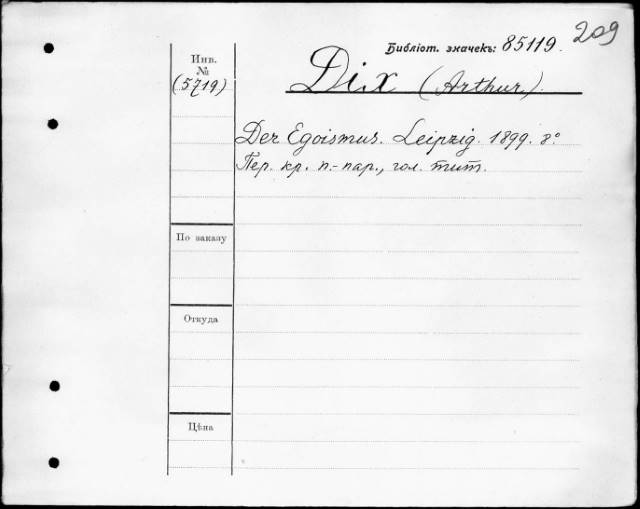 209
Библіот. значекъ: 85119.
Инв.
№
(5719)
Dix (Arthur).
Der Egoismus. Leipzig. 1899. 8°
Пер. кр. п.-пар., гол. тит.
По заказу
Откуда
Цѣна